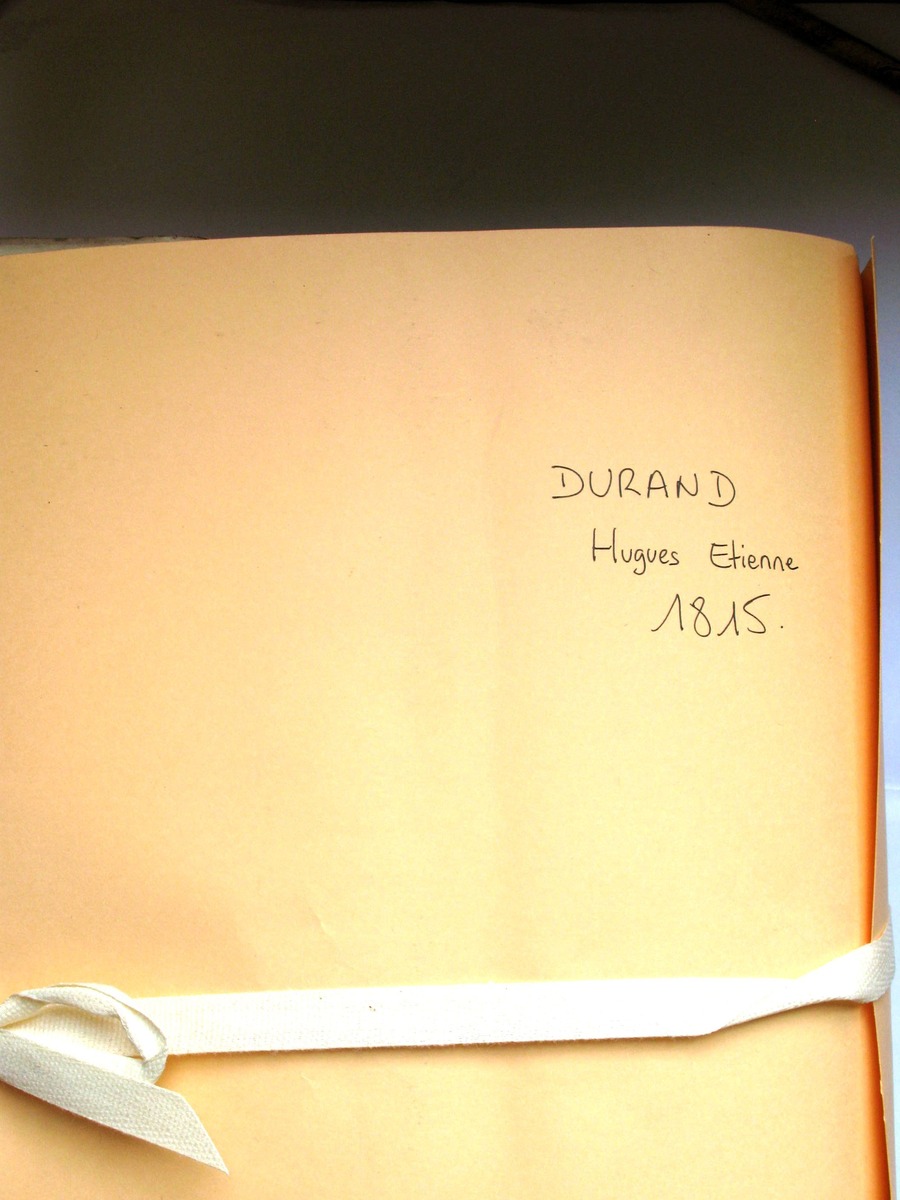 DURAND
Hugues Etienne
1815.